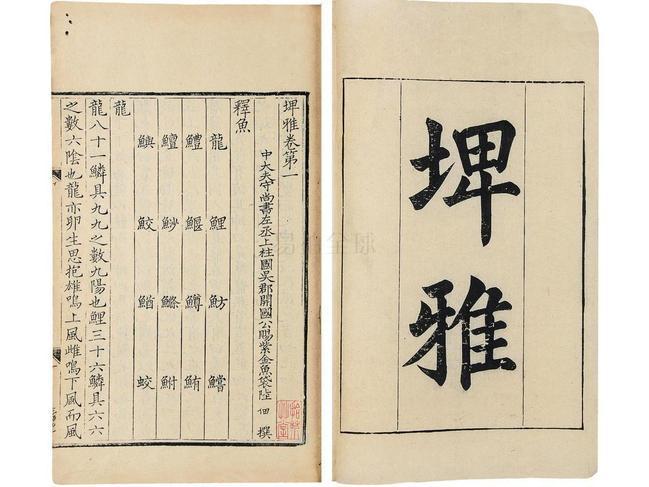 埤雅
埤雅卷第一
中大夫守尚書左丞上柱國吳郡開國公賜紫金魚袋陸佃撰
釋魚
龍 鯉 魴 鱨
鱧 鰋 鱒 鮪
鱣 魦 鰷 鮒
鱮 鮫 鰌 蛟
龍
龍八十一鱗具九九之數九陽也鯉三十六鱗具六六
之數六陰也龍亦卵生思抱雄鳴上風雌鳴下風而風